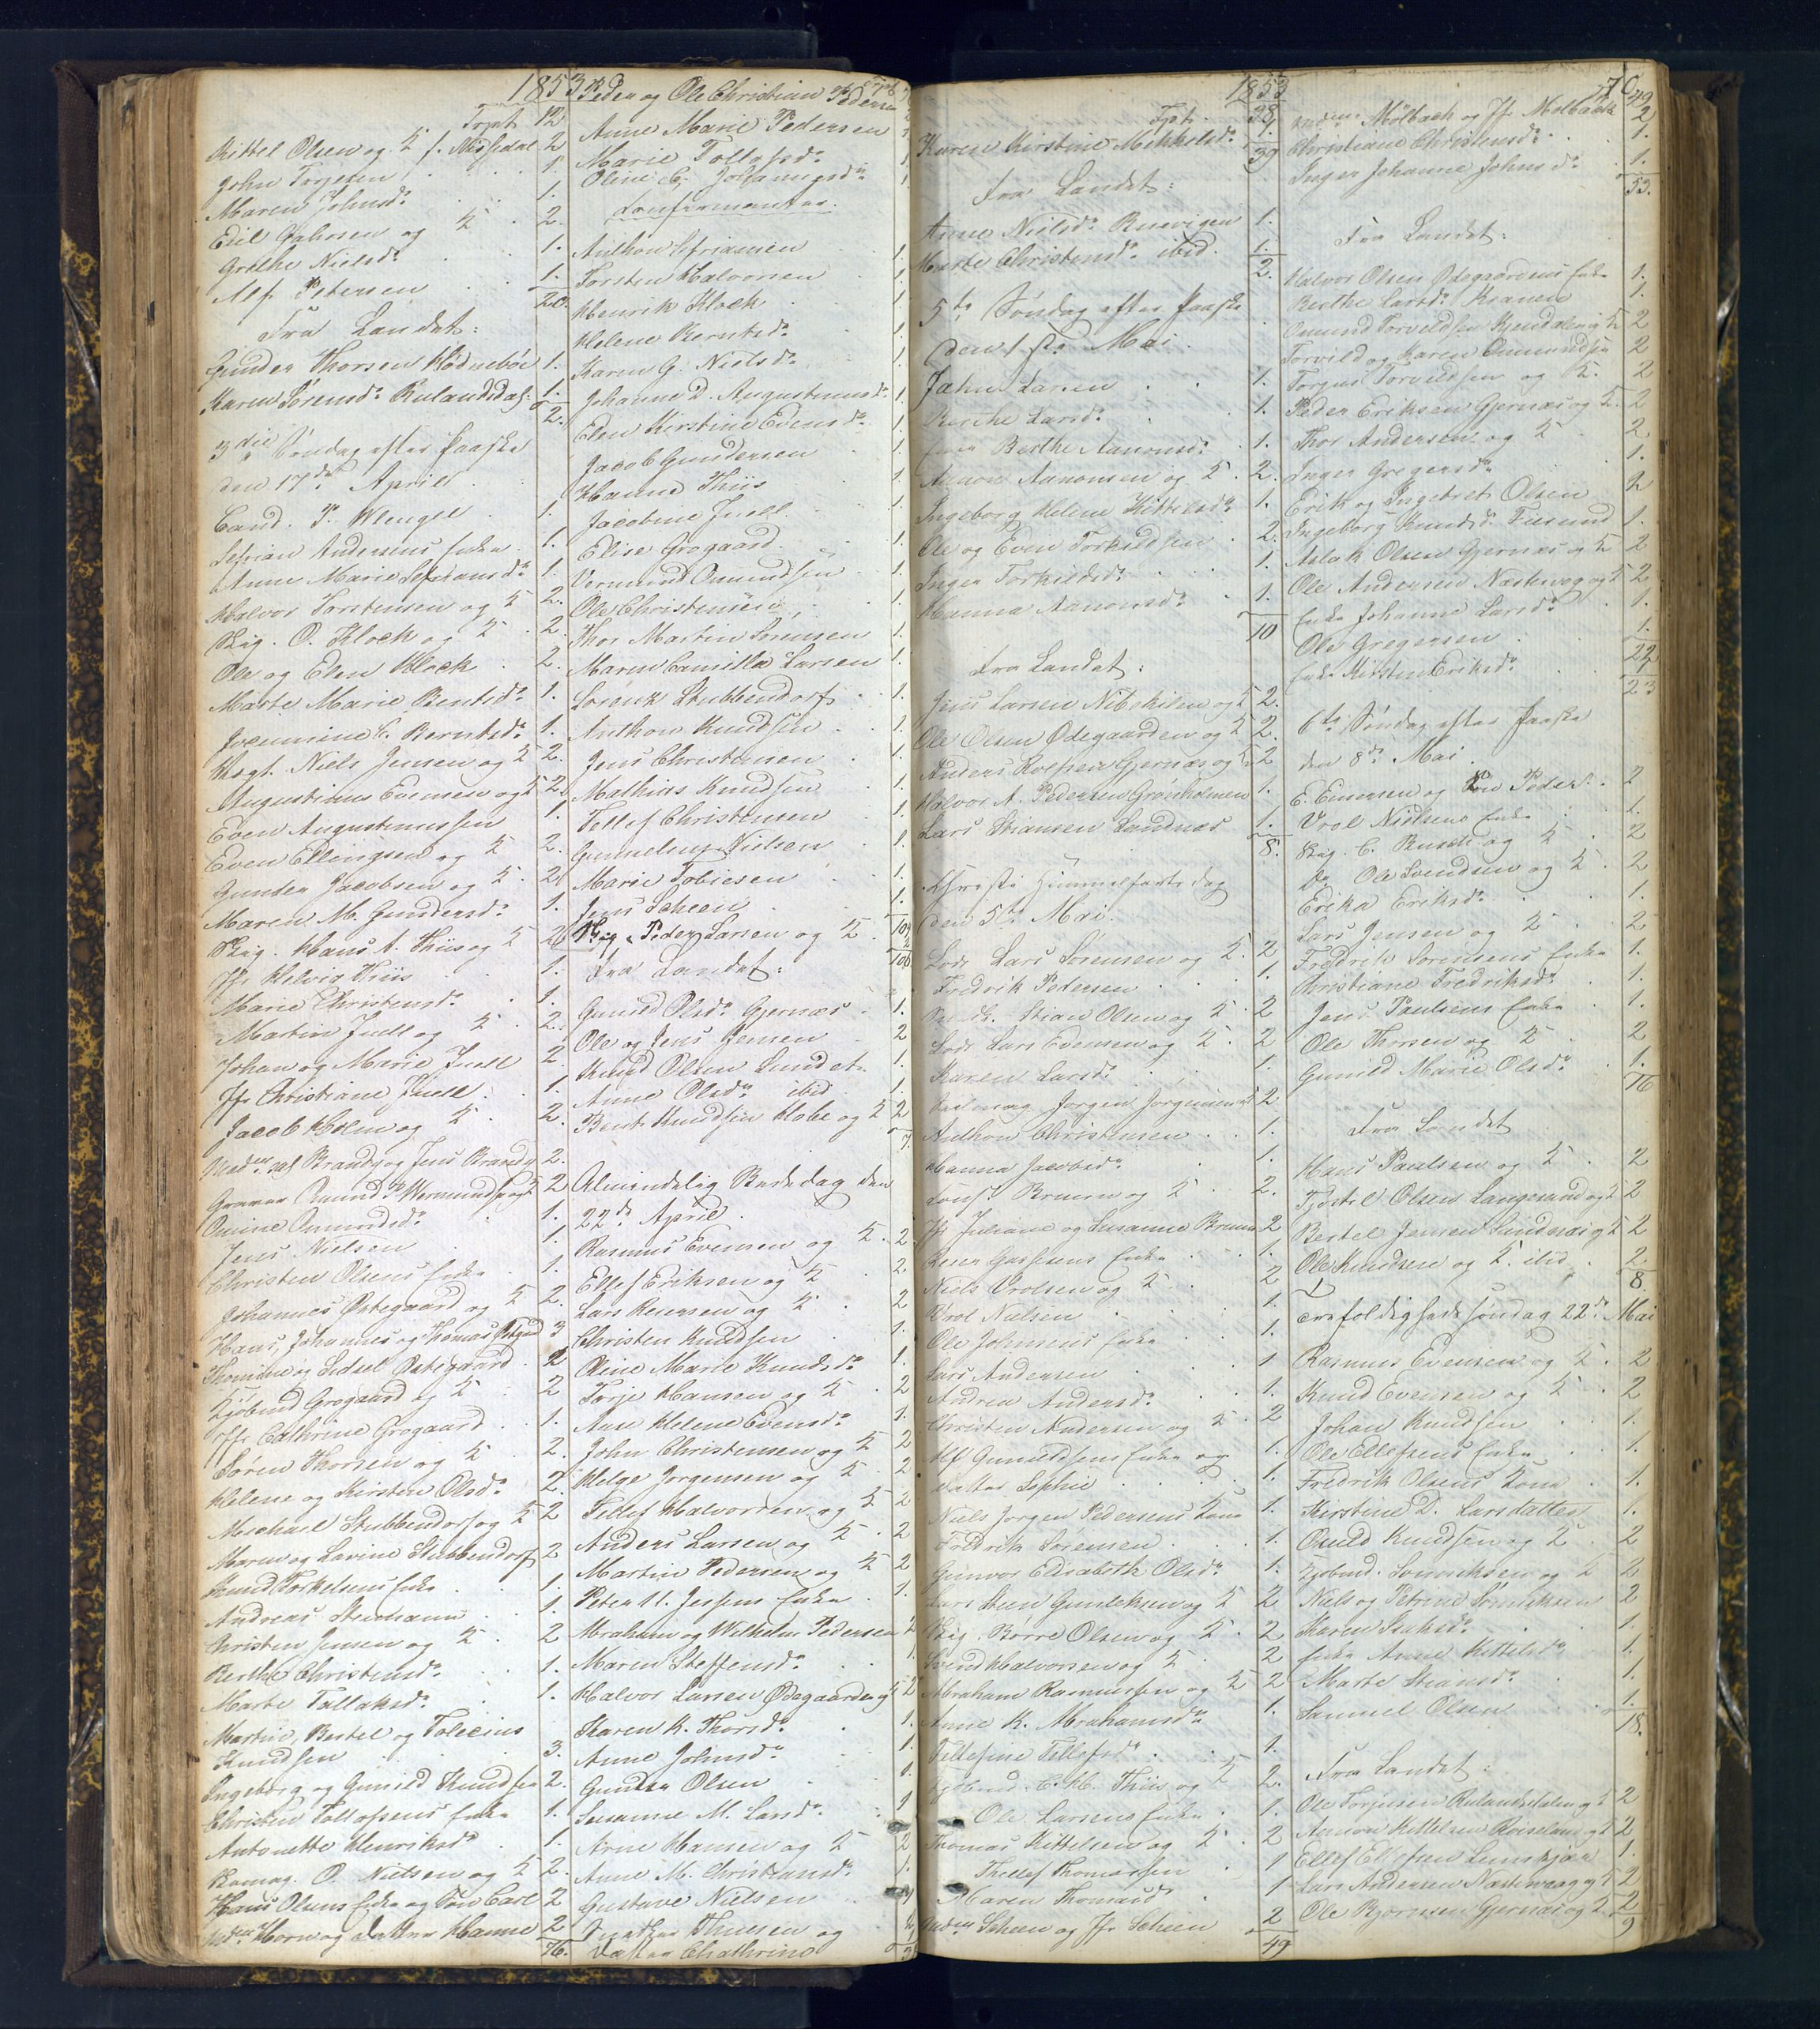 1853
Trpt. 12
Kittel Olsen og K f. Nissedal 2
John Torjesen 1.
Maren Johnsdr. 1.
Edil Gahrsen og K 2.
Grethe Nielsdr. 1.
Alf Petersen 1.
20.
Fra Landet:
Gunder Thorsen Hødnebøe 1.
Karen Sørensdr. Rulandsdal. 1.
2.
3die Søndag efter Paaske
den 17de April.
Cand. P. Wlengel 1.
Sefrian Andersens Enke 1.
Anne Marie Sefriansdr. 1.
Halvor Torstensen og K 2.
Skig. O. Klock og K 2.
Ole og Elen Klock 2.
Marte Marie Berntsdr. 1.
Joenmine C. Berntsdr. 1.
Kagt. Niels Jensen og K 2.
Augustinus Evensen og K 2.
Even Augustinussen 1.
Even Ellingsen og K 2.
Gunder Jacobsen og K 2.
Maren M. Gundersdr. 1.
Skig. Hans A. Thiis og K 2
Jfr Helvig Thiis 1.
Marie Christensdr. 1.
Martin Juell og K 2.
Johan og Marie Juell 2
Jfr Christiane Juell 1.
Jacob Holm og K 2.
Madm sal Brandt og Jens Brandt 2.
Graver Omund Wermundsen og K 2
Omine Omundsdr. 1.
Jens Nielsen 1.
Christen Olsens Enke 1.
Johannes Østegaard og K 2.
Hans, Johannes og Thomas Østgaard 3
Thomine og Sidsel Østegaard 2
Kjøbmd Grogaard og K 2
Jfr Cathrine Grogaard 1.
Søren Thorsen og K 2.
Helene og Kirsten Olsdr. 2.
Michael Stubbendorf og K 2
Maren og Lavine Stubbendorf 2
Knud Torkelsens Enke 1.
Andreas Steenhann 1.
Christen Jensen og K 2
Berthe Christensdr. 1.
Marte Tallaksdr. 1.
Martin, Bertel og Tobias
Knudsen 3.
Ingeborg og Gunild Knudsen 2.
Christen Tollefsens Enke 1.
Antonette Henriksdr. 1.
O. Nielsen og K 2.
Hans Olsens Enke og Søn Carl 2
Mdm Horn og datter Hanne 2
76.
Peder og Ole Christian Pedersen
Anne Marie Pedersen
Marie Tollefsdr. 1.
Oline C. Johannesdr. 1.
Confirmanter.
Anthon Sefriansen 1.
Torsten Halvorsen 1.
Henrik Klock 1.
Helene Berntsdr. 1.
Karen G. Nielsdr. 1.
Johanne D. Augustinusdr. 1.
Elen Kirstine Evensdr. 1.
Jacob Gundersen 1.
Hanne Thiis 1.
Jacobine Juell 1.
Elise Grogaard 1.
Vermund Omundsen 1.
Ole Christensen 1.
Thor Martin Sørensen 1.
Maren Camilla Larsen 1.
Lorentz Stubbendorf 1.
Anthon Knudsen 1.
Jens Christensen 1.
Mathias Knudsen 1.
Tellef Christensen 1.
Nielsen 1.
Marie Tobiesen 1.
Jens Scheen 1.
104
Skig. Peder Larsen og K 2
106
Fra Landet:
Gunild Olsdr. Gjernæs 1.
Ole og Jens Jensen 2
Knud Olsen Sundet 1.
Anne Olsdr. ibid 1.
Bent Knudsen Hobe og K 2
7.
Almindelig Bededag den
22de April.
Rasmus Evensen og K. 2.
Ellef Eriksen og K 2
Lars Reiersen og K 2
Christen Knudsen 1.
Oline Marie Knudsdr. 1.
Torje Hansen og K 2
Anne Helene Evensdr. 1.
John Christensen og K 2
Helge Jørgensen og K 2
Tellef Halvorsen og K 2
Anders Larsen og K 2
Martin Pedersen og K 2
Peter U. Jespers Enke 1.
Abraham og Wilhelm Pedersen 2
Maren Steffensdr. 1
Halvor Larsen Ødegaarden og K 2
Karen K. Thorsdr. 1.
Anne Johnsdr. 1.
Gunder Olsen 1.
Susanne M. Larsdr. 1
Arne Hansen og K 2
Anne M. Christiansdr. 1.
Gustave Nielsen 1
Thuesen og
Datter Chathrine
1853
70
Trpt. 38
Karen Kirstine Mikkelsdr. 1.
39
Fra Landet:
Anne Nielsdr. Ruevigen 1.
Marte Christensdr. ibid. 1.
2.
5te Søndag efter Paaske
den 1ste Mai.
Jahn Larsen 1.
Berthe Larsdr. 1.
Enke Berthe Aanonsdr. 1.
Aanon Aanonsen og K 2.
Ingeborg Helene Kittelsdr. 1.
Ole og Even Torkildsen 2.
Inger Torkildsdr. 1.
Hanna Aanonsdr. 1.
10
Fra Landet:
Jens Larsen Nibekilen og K 2.
Ole Olsen Ødegaarden og K 2.
Anders Roefsen Gjernæs og K 2
Halvor A. Pedersen Grønholmen 1.
Lars Stiansen Landnæs 1.
8.
Christi Himmelfarts dag
den 5te Mai.
Lods Lars Sørensen og K. 2
Fredrik Pedersen 1.
Stian Olsen og K 2
Lods Lars Evensen og K 2
Karen Larsdr. 1.
Jørgen Jørgensen og K 2
Anthon Christensen 1.
Hanna Jacobsdr. 1.
Consl. Bruun og K 2.
Jfr Juliane og Susanne Bruun 2
Reier Gassens Enke 1.
Niels Vrolsen og K 2
Vrol Nielsen 1.
Ole Johnsens Enke 1.
Lars Andersen 1
Andrea Andersdr. 1.
Christen Andersen og K 2
Alf Gunuldsens Enke og 1.
datter Sophie 1.
Niels Jørgen Pedersens Kone 1.
Fredrik Sørensen 1.
Gunvor Elisabeth Olsdr. 1.
Lars Steen Gunleksen og K 2
Skig. Børre Olsen og K 2
Svend Halvorsen og K 2
Abraham Rasmussen og K 2
Anne K. Abrahamsdr. 1.
Tellefine Tellefsdr. 1.
Kjøbmd. C. H. Thiis og K 2.
Ole Larsens Enke 1.
Thomas Kittelsen og K 2
Thellef Thomassen 1
Maren Thomasdr. 1
Mdm Scheen og Jfr Scheen 2
49
Trpt 49
Mdm Mølbach og Jf Mølbach 2
Christiane Christensdr. 1.
Inger Johanne Johnsdr. 1.
53.
Fra Landet:
Halvor Olsen Ødegaardens Enke 1.
Berthe Larsdr. Kranen 1.
Omund Torvildsen Kjendalen og K 2
Torvild og Karen Ommundsen 2
Torgius Torvildsen og K. 2
Peder Eriksen Gjernæs og K. 2
Thor Andersen og K 2
Inger Gregersdr. 1.
Erik og Ingebret Olsen 2
Ingeborg Knudsdr. 1.
Aslak Olsen Gjernæs og K 2
Ole Andersen Næstevog og K 2
Enke Johanne Larsdr. 1.
Ole Gregersen 1.
22
Enke Kirsten Eriksdr. 1
23
6te Søndag efter Paaske
den 8de Mai.
E. Einersen og Søn Peder 2
Vrol Nielsens Enke 1.
Skig. C. Buseth og K 2
Do Ole Svendsen og K 2
Erika Eriksdr. 1.
Lars Jensen og K 2
Fredrik Sørensens Enke 1.
Christiane Fredriksdr. 1.
Jens Paulsens Enke 1.
Ole Thorsen og K 2
Gunild Marie Olsdr. 1.
16
Fra Landet
Hans Paulsen og K 2
Tjøstel Olsen Langesund og K 2
Bertel Jensen Sundnæs og K 2
Ole Knudsen og K. ibid 2.
8.
Trefoldigheds søndag 22de Mai
Rasmus Evensen og K 2
Knud Evensen og K 2
Johan Knudsen 1.
Ole Ellefsens Enke 1.
Fredrik Olsens Kone 1.
Kirstine D. Larsdatter 1.
Ouuld Knudsen og K 2
Kjøbmd. Sønniksen og K 2
Niels og Petrine Sønniksen 2
Karen Isaksdr. 1.
Enke Anne Kittelsdr. 1.
Marte Stiansdr. 1.
Samuel Olsen 1.
18.
Fra Landet:
Ole Torjusen Rulandsdalen og K 2
Aanon Kittelsen Roiseland og K 2
Ellef Ellefsen Lunskjær 1.
Lars Andersen Næstevaag og K 2
Ole Bjørnsen Gjernæs og K 2
9